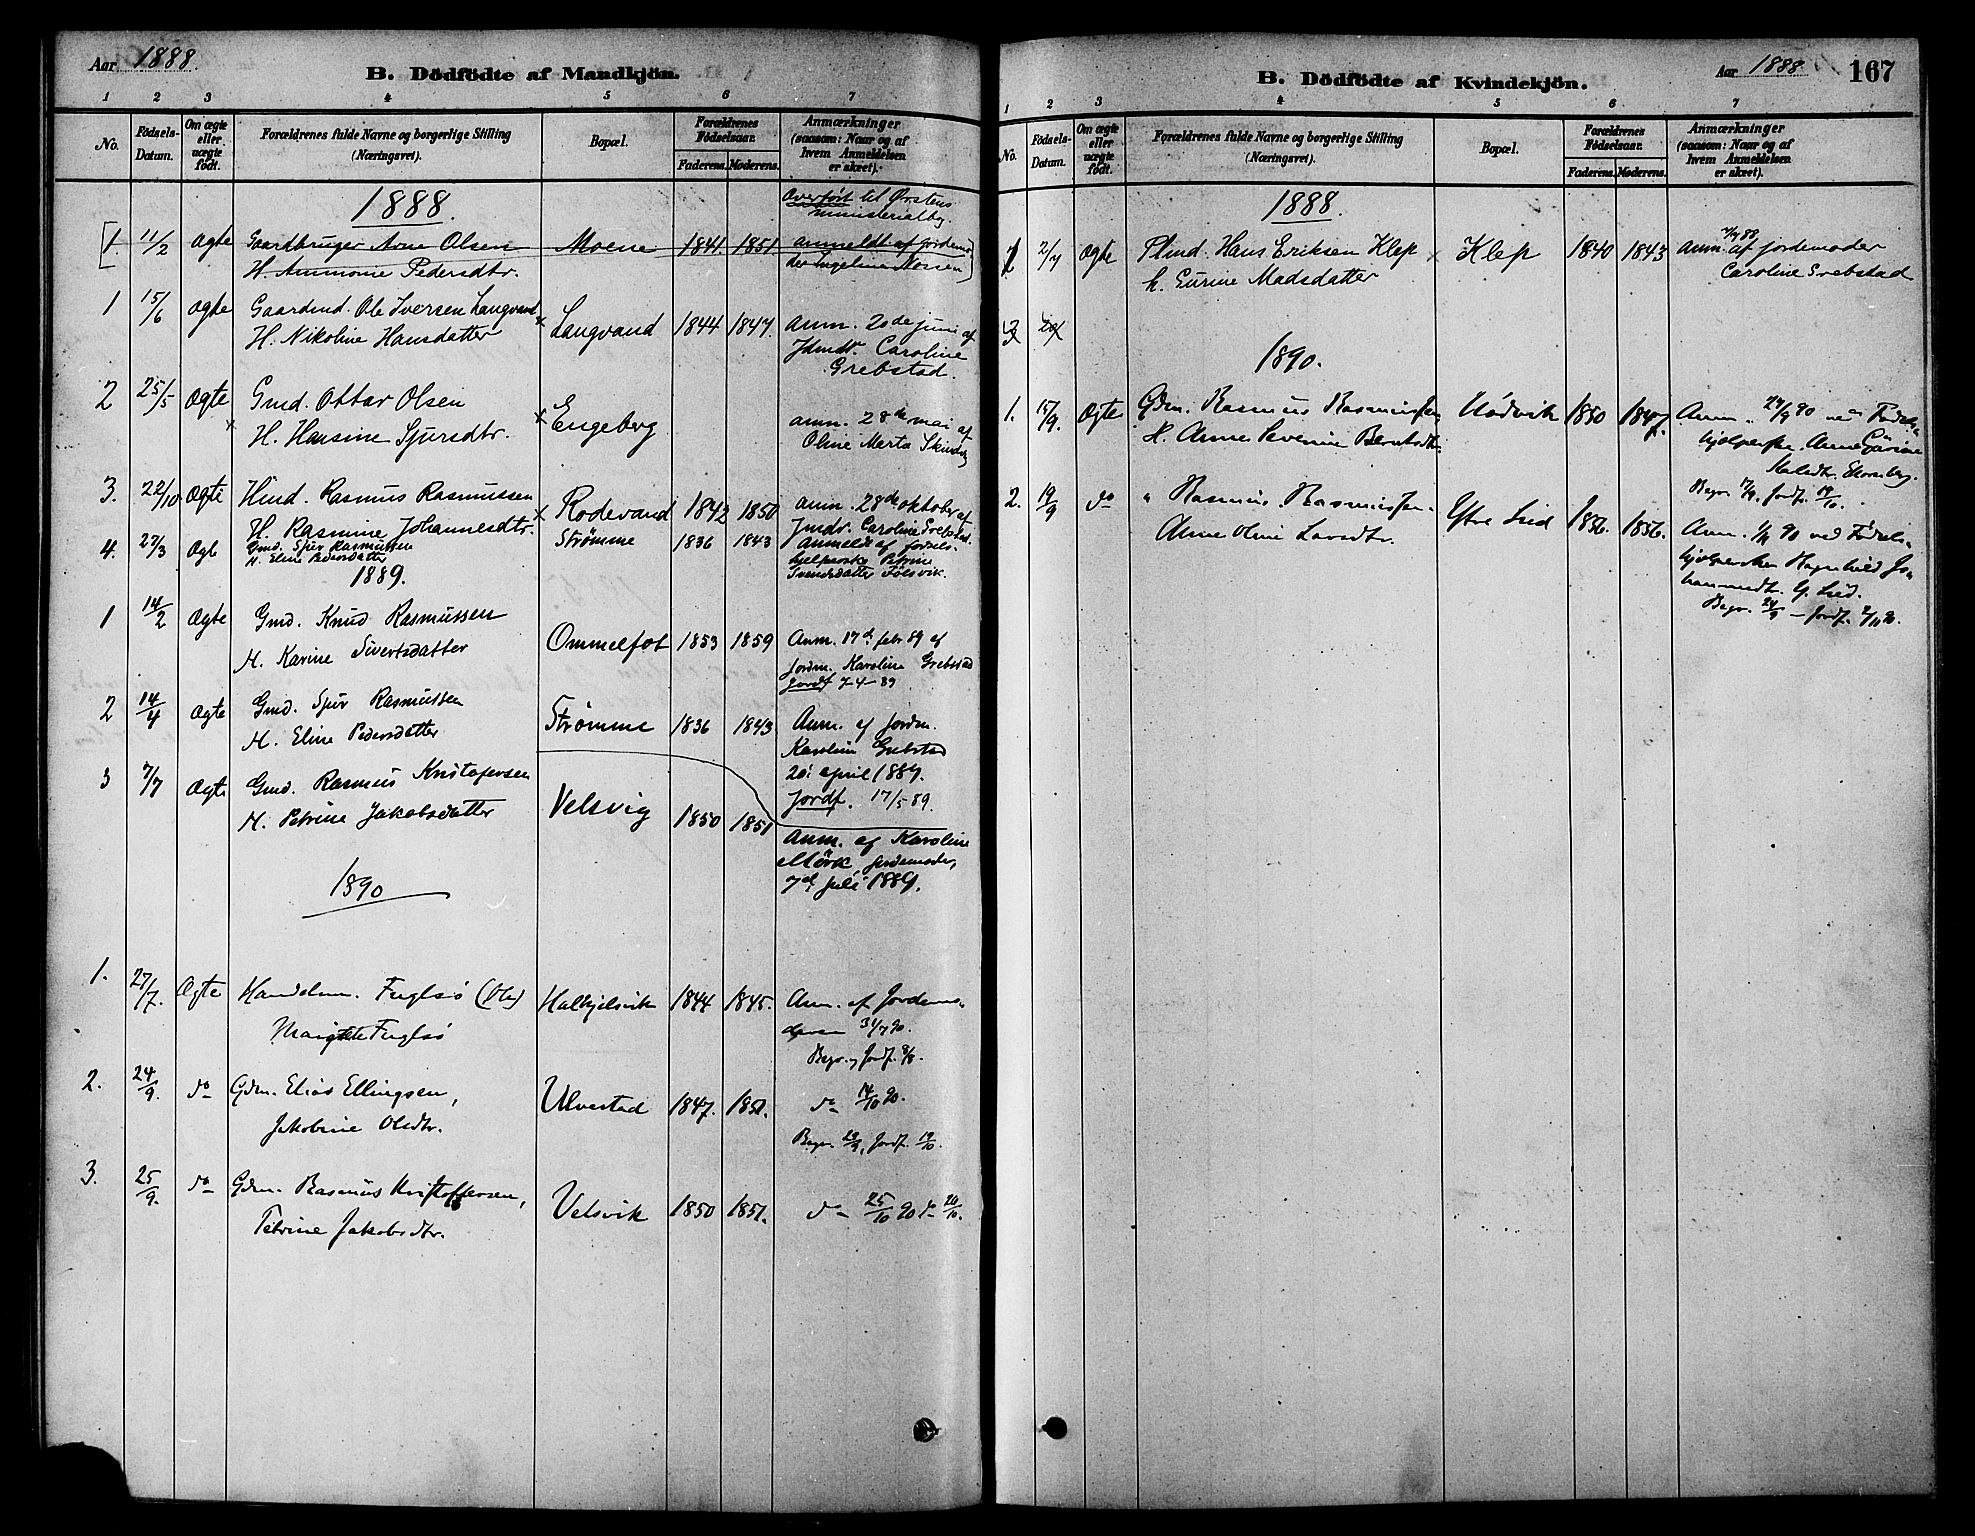 Aar 1888.
B. Dödfödte af Mandkjön.
1 2 3 4 5 6 7
No.
Födsels-
Datum.
Om ægte
eller
uægte
født.
Forældrenes fulde Navne og borgerlige Stilling
(Næringsvei).
Bopæl.
Forældrenes
Fødselsaar.
Faderens. Moderens.
Anmærkninger
(saasom: Naar og af
hvem Anmeldelsen
er skeet).
1888.
Overført til Ørstens
ministerialbog.
1. 11/2 Ægte Gaardbruger Arne Olsen Moene 1841. 1851 anmeldt af jordemo-
H. Ammonie Pedersdtr. der Ingeline Nossen
1 15/6 Ægte Gaardmd. Ole Iversen Langvand
H. Nikoline Hansdatter Langvand 1844 1847. Anm. 20de juni af
Jdmdr. Caroline
Grebstad.
2 25/5 Ægte Gmd. Ottar Olsen
H. Hansine Sjursdtr. Engeberg anm. 28de mai af
Oline Merta
3. 22/10 Ægte Hmd. Rasmus Rasmussen Rodevand 1842 1850 anm. 28de oktober af
H. Rasmine Johannesdtr. Jmdr. Caroline Grebstad.
4. 27/3 Ægt Gmd. Sjur Rasmussen Strømme 1836 1843 Anmeldt af fødsels-
H. Eline Pedersdatter hjelperske Petrine
Svendsdatter Følsvik.
1889.
1 14/2 Ægte Gmd. Knud Rasmussen
H. Karine Sivertsdatter Ommelfot 1853 1859 Anm. 17de febr 89 af
Jordm. Karoline Grebstad
Jordf 7-4-89
2 14/4 Ægte Gmd. Sjur Rasmussen
H. Eline Pedersdatter Strømme 1836 1843 Anm. af jordm.
Karoline Grebstad
20. april 1889.
Jordf. 17/5 89.
3 7/7 Ægte Gmd. Rasmus Kristofersen
H. Petrine Jakobsdatter Velsvig 1850 1851
Anm. af Karoline
Mørk, jordemoder,
7de juli 1889.
1890
1. 27/7. Ægte Handelsm. Fuglsø (Ole) Halkjelsvik 1844 1845. Anm. af Jordemo-
Margrete Fuglsø deren 31/7 90.
Begr. og Jordf. 8/8.
2. 24/9. do Gdm. Elias Ellingsen, Ulvestad 1847. 1851. do 14/10 90.
Jakobine Olsdtr.
Begr. 29/9, Jordf. 19/10
3. 25/9. do Gdm. Rasmus Kristoffersen, Velsvik 1850 1851. do 25/10 90 do 26/10.
Petrine Jakobsdtr.
Aar 1888 167
B. Dödfödte af Kvindekjön.
1 2 3 4 5 6 7
No.
Födsels-
Datum.
Om ægte
eller
uægte
født.
Forældrenes fulde Navne og borgerlige Stilling
(Næringsvei).
Bopæl.
Forældrenes
Fødselsaar.
Faderens. Moderens.
Anmærkninger
(saasom: Naar og af
hvem Anmeldelsen
er skeet).
1888.
1 2/7 Ægte Plmd. Hans Eriksen Klep Klep 1840 1843 anm. af jordemoder
h. Eurine Madsdatter Caroline Grebstad
2
1890.
1. 15/9. Ægte Gdm. Rasmus Rasmussen, 1850 1847. Anm. 24/9 90 ved Fødsels-
H. Anne Severine Berntsdtr. hjelperske Anne
Begr. 17/9. Jordf. 19/10.
2. 19/9 do " Rasmus Rasmussen Ytre Lid 1856. 1856.
Anne Oline Larsdtr. Anm. 1/11 90 ved Fødsels-
hjelperske Ragnhild Jo-
hannesdt. Y. Lid.
Begr. 24/9 – Jordf. 2/11 90.